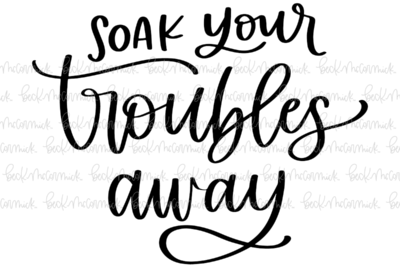 SOAK your
troubles
away